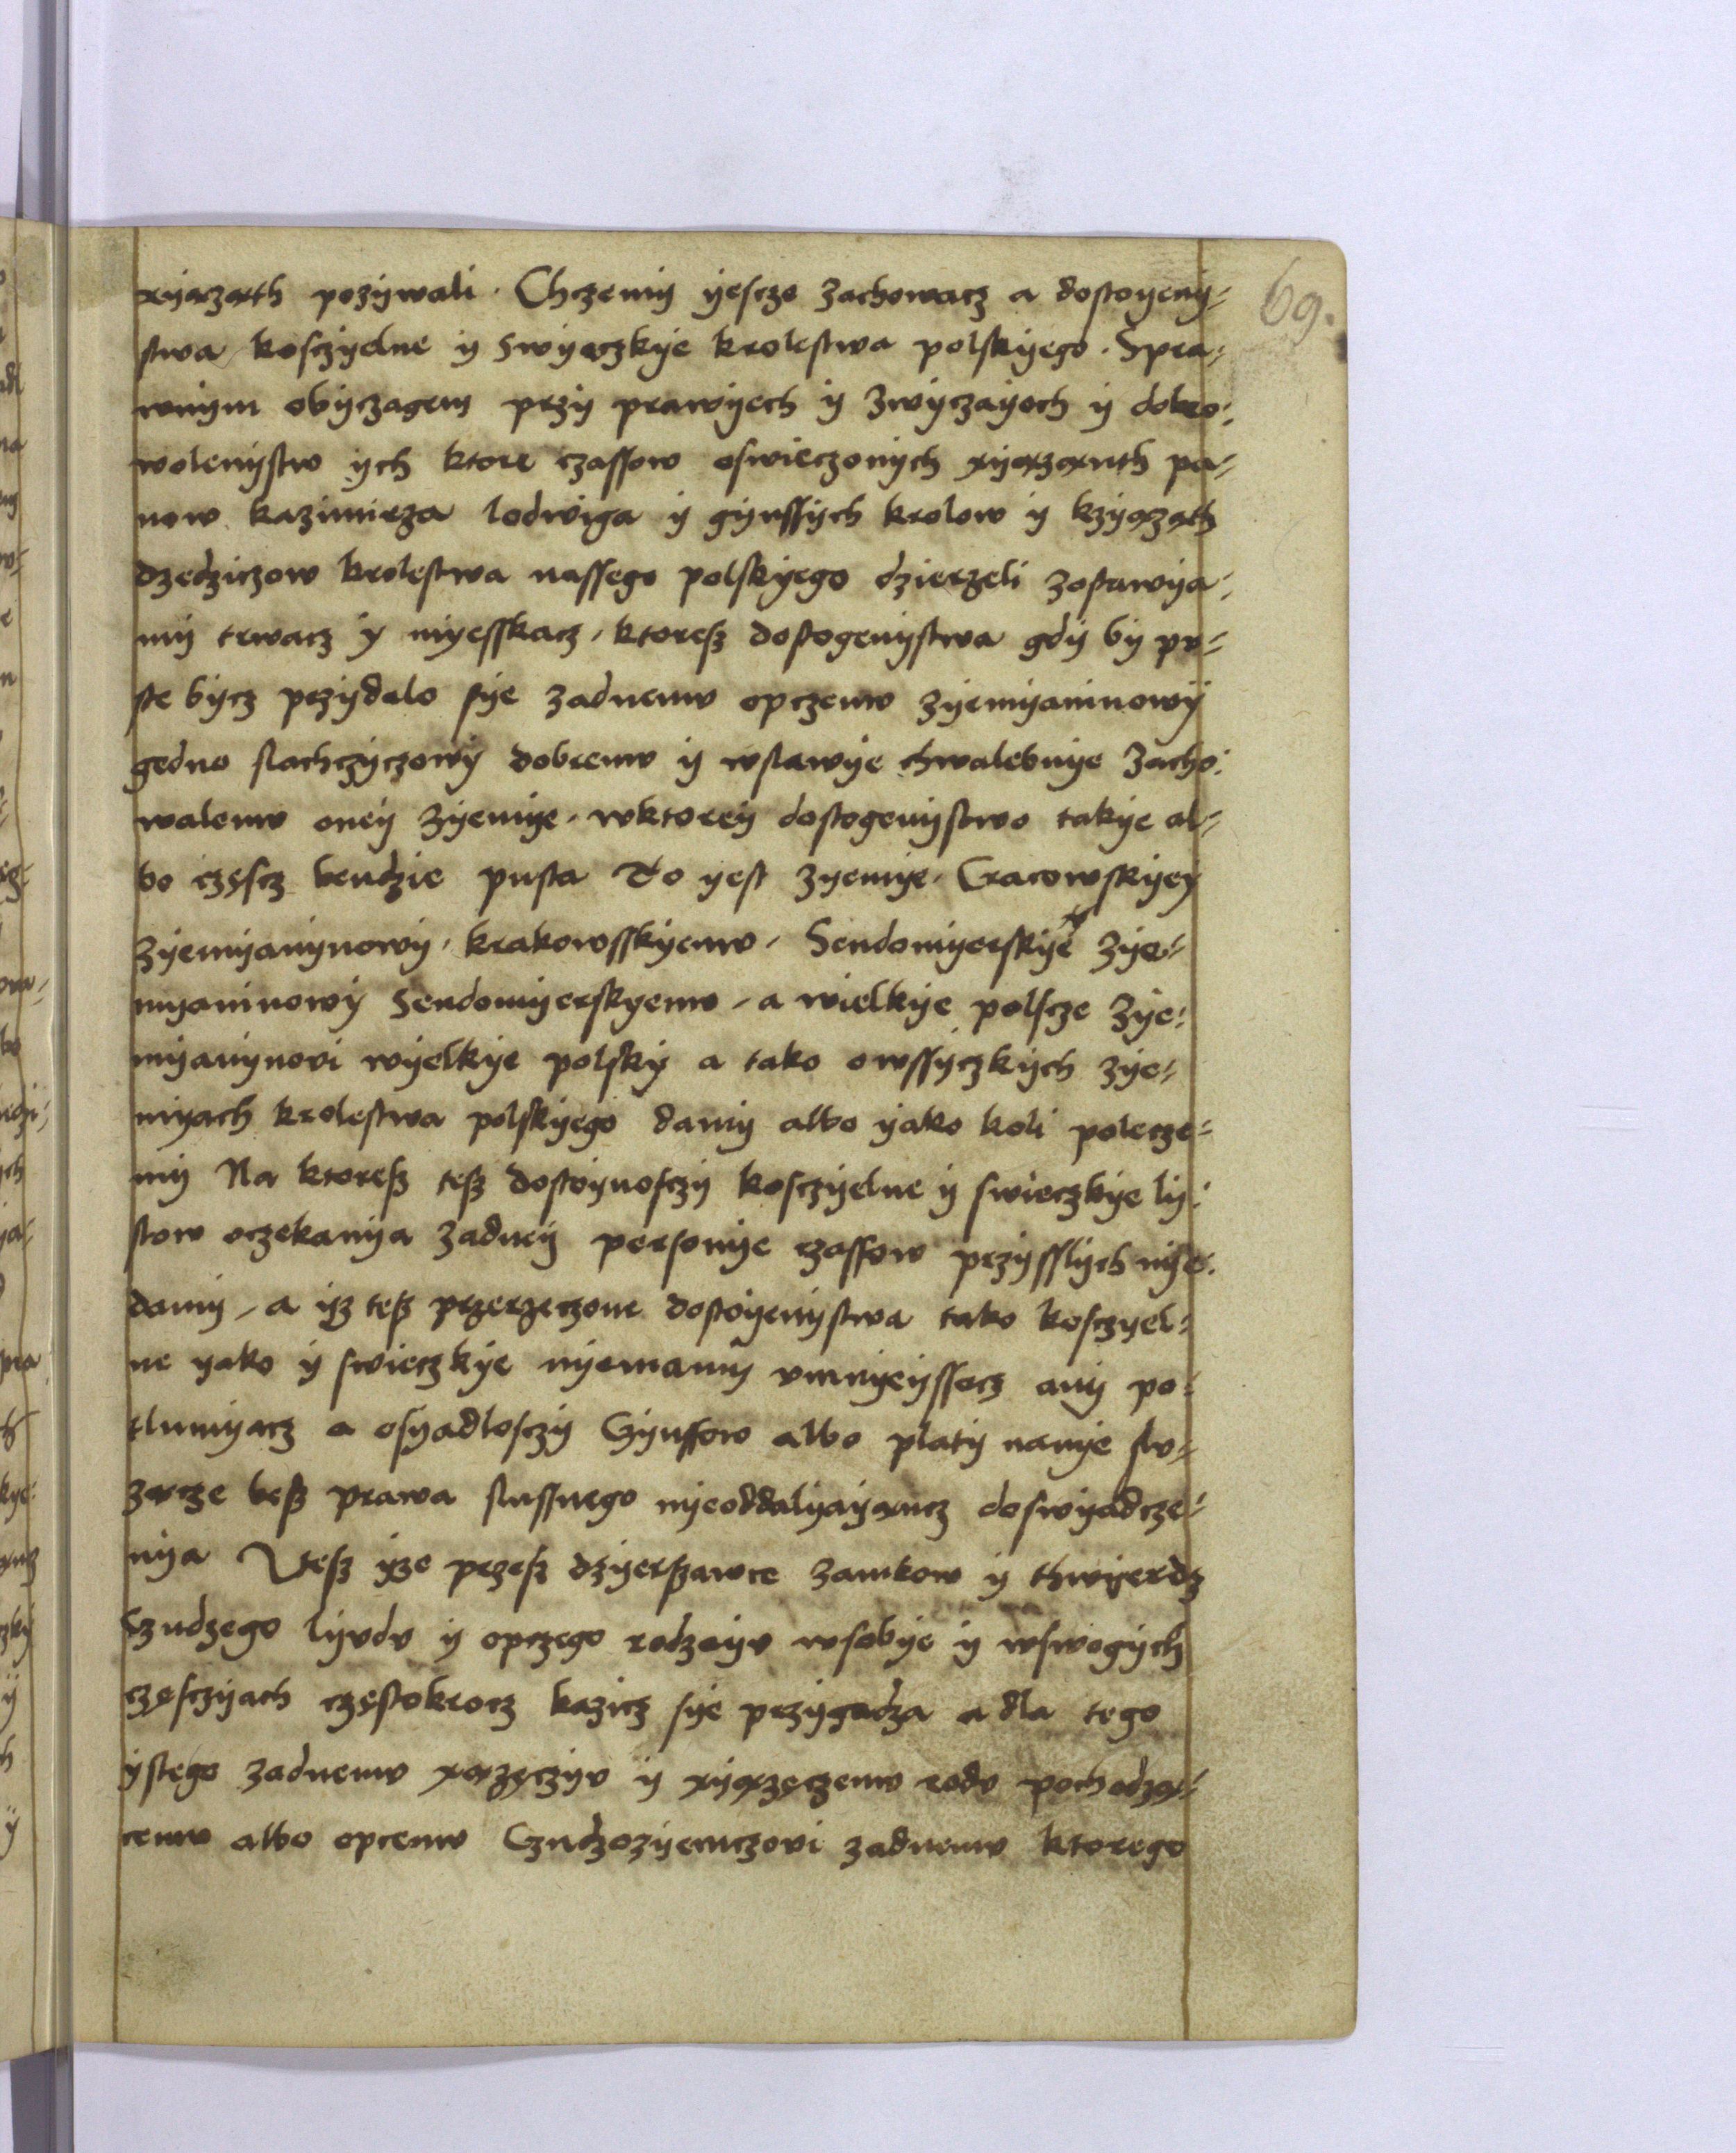 xyącząth pozywali. Chczemy yescze zachowacz a dostoyeny⸗
stwa kosczyelne y swyęczkye krolestwa polskyego. Spra⸗
wnym obyczagem przy prawyech y zwyczayoch y dobro⸗
wolenystw ych ktore czassow oswieczonych xyążąnth pa⸗
now kazimirza lodwiga y gynssych krolow y kzyążąth
dzedziczow krolestwa nassego polskyego dzierzeli zostawya⸗
my trwacz y myesskacz, ktoresz dostogenystwa gdy by pv⸗
ste bycz przydalo sye zadnemv opczemv zyemyaninowy
gedno slachczyczowy dobremv y wstawye chwalebnye zacho⸗
walemv oney zyemye. wktorey dostogenystwo takye al⸗
bo częscz bendzie pusta To yest zyemye. Cracowskyey
zyemyanynowy, krakowsskyemv, Sendomyerskyey zye⸗
myaninowy Sendomyerskyemv, a wielkye polscze zye⸗
myanynovi wyelkye polsky a tako owssyczkych zye⸗
myach krolestwa polskyego damy albo yako koli polecze⸗
my Na ktoresz tesz dostoynosczy kosczyelne y swieczkye ly⸗
stow oczekanya zadney personye czassow przysslych nye
damy, a ysz tesz przerzeczone dostoyenystwa tako kosczyel⸗
ne yako y swieczkye nyemamy vmnyeyssacz any po⸗
tlumyacz a osyadlosczy Gynssow albo platy nanye slv⸗
zącze besz prawa slussnego nyeoddalyayąncz doswyadcze⸗
nya Vtesz yze przesz dzyerszawce zamkow y thwyerdz
Czudzego lyvdv y opczego rodzayv wsobye y wswogych
częsczyach częstokrocz kazicz sye przygadza a dla tego
ystego zadnemv xążęczyv y xyążęczemv rodv pochodzą⸗
cemv albo opcemv Czudzozyemczovi zadnemv ktorego
69.